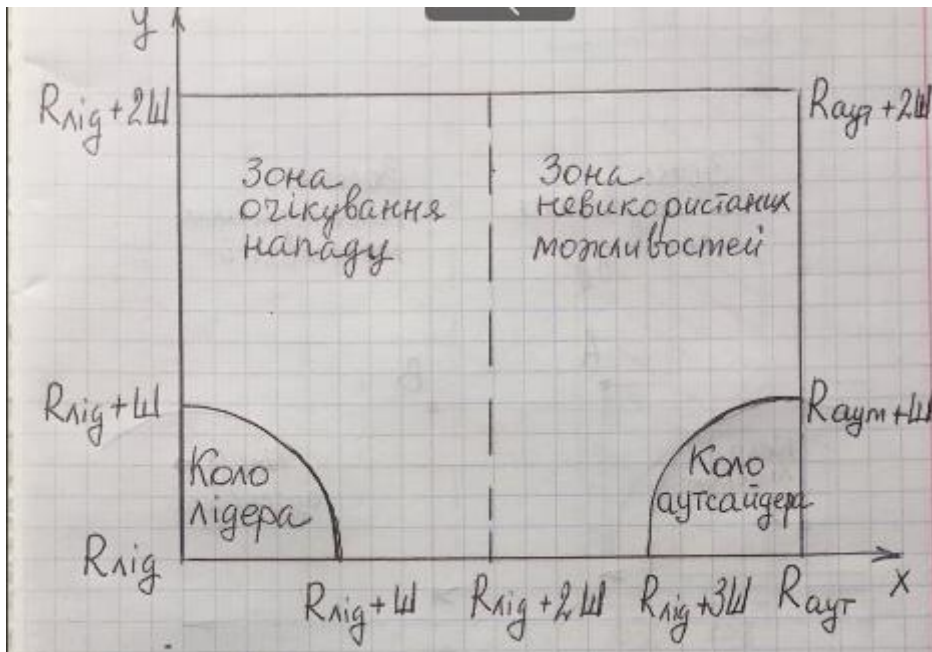 y
Rлід + 2Ш
Rаут + 2Ш
Зона
очікування
нападу
Зона
невикористаних
можливостей
Rлід + Ш
Rаут + Ш
Коло
лідера
Коло
аутсайдера
Rлід
Rлід + Ш
Rлід + 2Ш
Rлід + 3Ш
Rаут
x